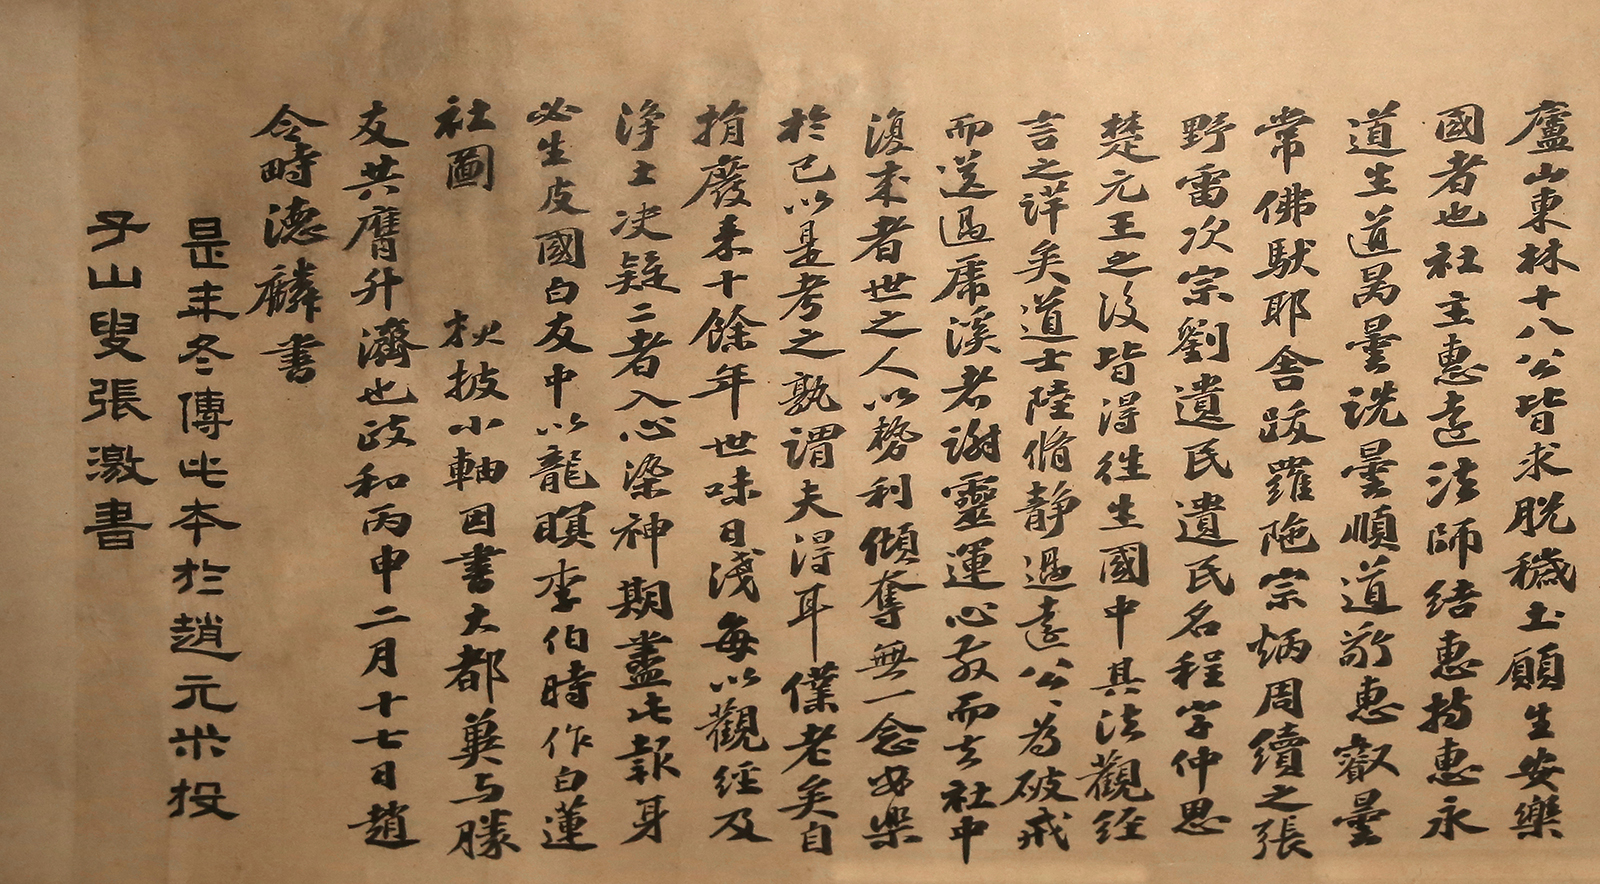 廬山東林十八公皆求脫穢土願生安樂
國者也社主惠遠法師結惠持惠永
道生道昺曇詵曇順道敬惠叡曇
常佛馱耶舍跋羅陁宗炳周續之張
野雷次宗劉遺民遺民名程字仲思
楚元王之後皆得往生國中其法觀經
言之詳矣道士陸脩靜過遠公公為破戒
而送過虎溪者謝靈運心亂而去社中
復來者世之人以勢利傾奪無一念安樂
於已以是考之孰謂夫得耳僕老矣自
捐廢來十餘年世味日淺每以觀經及
淨土決疑二者入心染神期盡此報身
必生皮國白友中以龍眠李伯時作白蓮
社圖 秋披小軸因書大都冀与勝
友共膺升濟也政和丙申二月十七日趙
令畤德麟書
是年冬傳此本於趙元米投
子山叟張激書